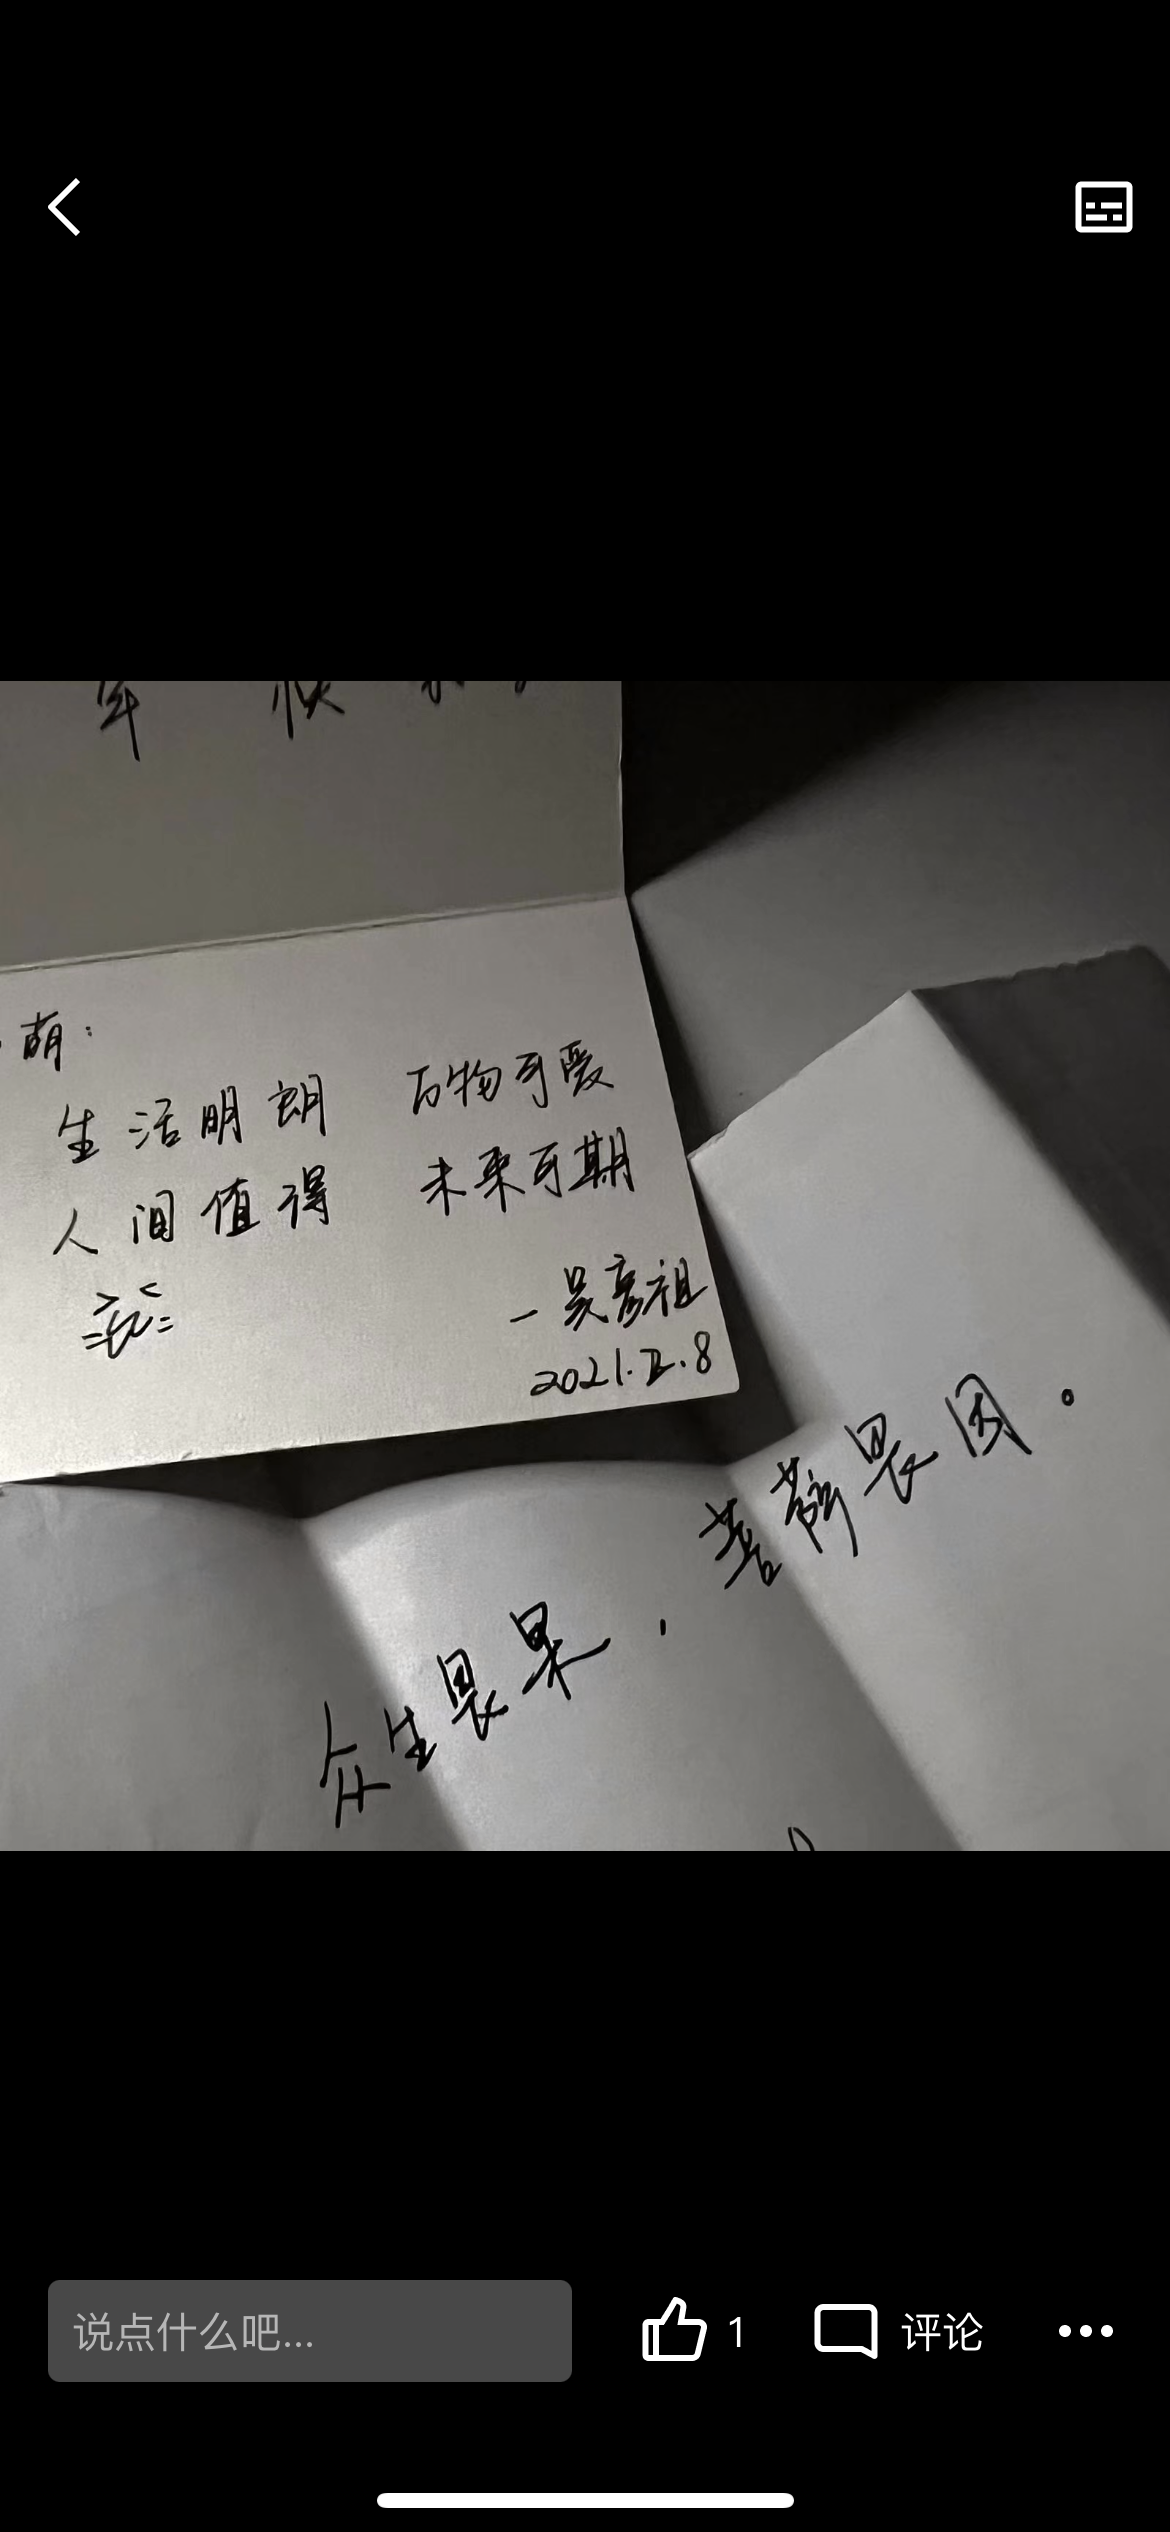 年 快
萌：
生活明朗 万物可爱
人间值得 未来可期
一吴彦祖
2021.2.8
众生畏果，菩萨畏因。
说点什么吧...
1 评论